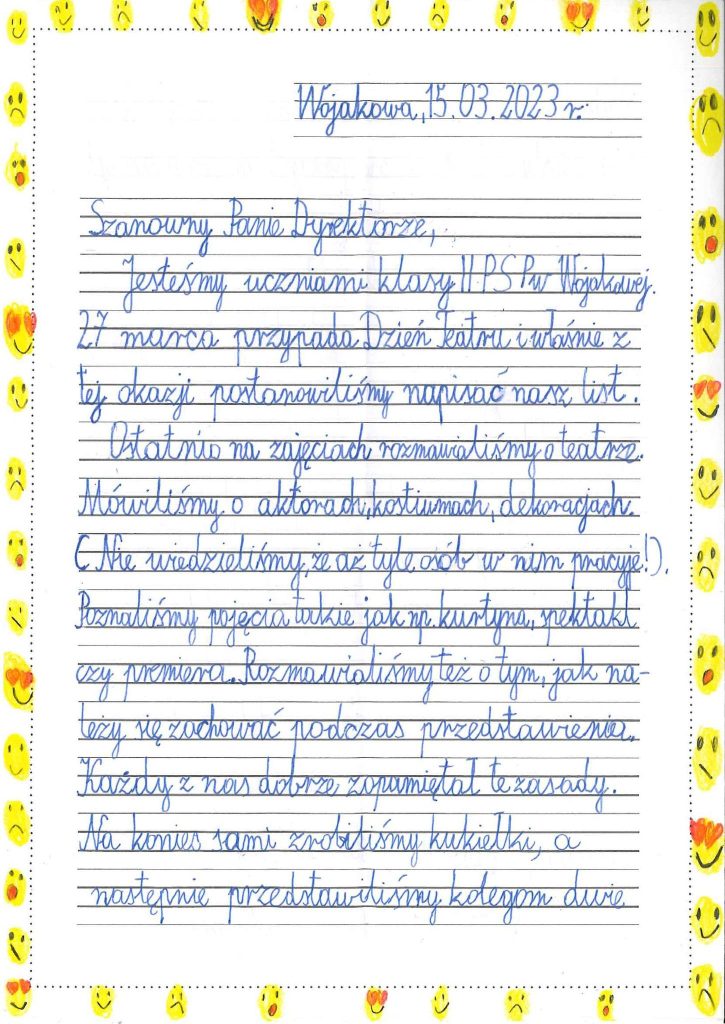 Wojakowa, 15.03.2023 r.
Szanowny Panie Dyrektorze,
Jesteśmy uczniami klasy II PSP w Wojakowej.
27 marca przypada Dzień Teatru i właśnie z
tej okazji postanowiliśmy napisać nasz list.
Ostatnio na zajęciach rozmawialiśmy o teatrze.
Mówiliśmy o aktorach, kostiumach, dekoracjach.
( Nie wiedzieliśmy, że aż tyle osób w nim pracuje!).
Poznaliśmy pojęcia takie jak np. kurtyna, spektakl
czy premiera. Rozmawialiśmy też o tym, jak na-
leży się zachować podczas przedstawienia.
Każdy z nas dobrze zapamiętał te zasady.
Na koniec sami zrobiliśmy kukiełki, a
następnie przedstawiliśmy kolegom dwie